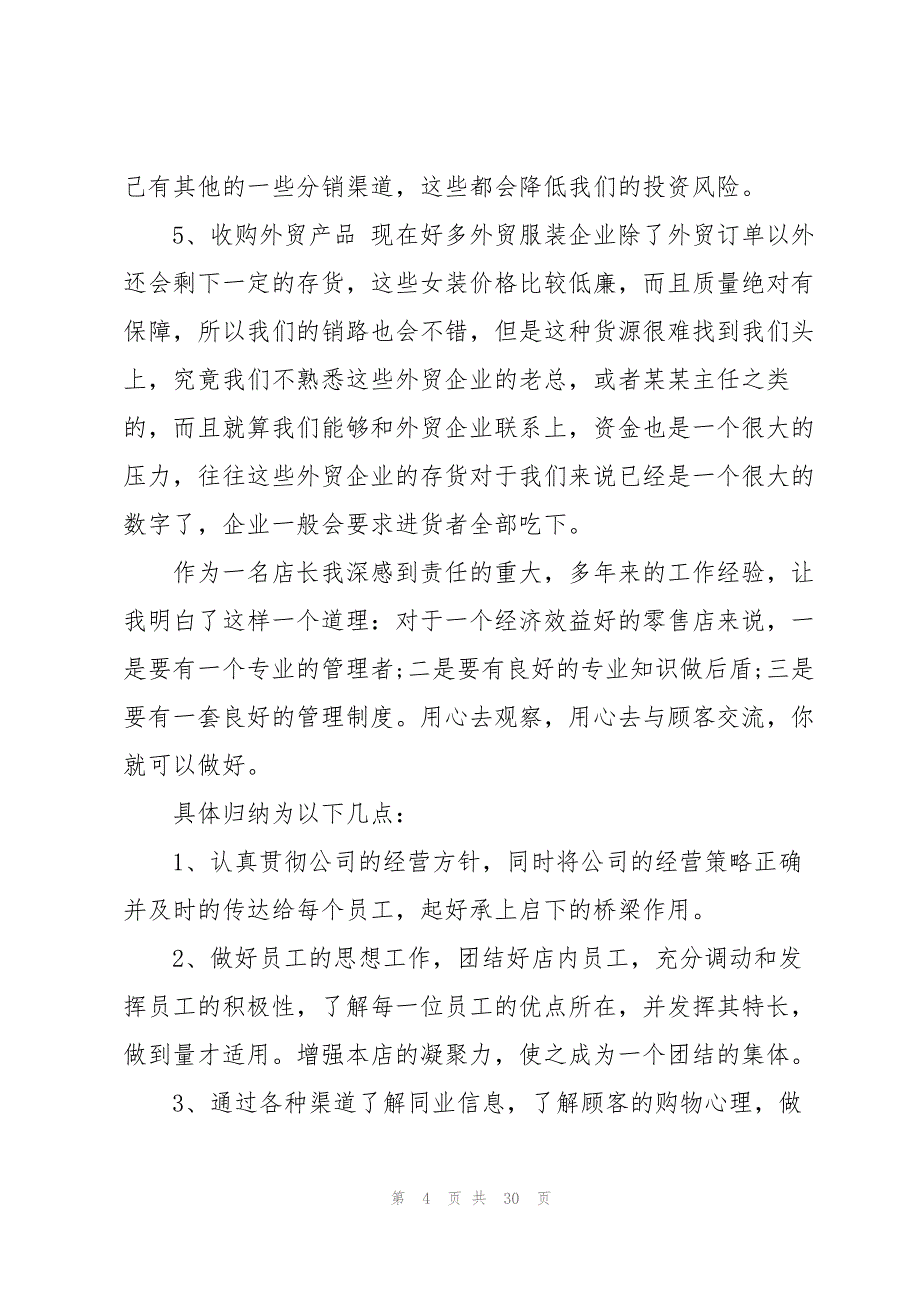 己有其他的一些分销渠道，这些都会降低我们的投资风险。
5、收购外贸产品 现在好多外贸服装企业除了外贸订单以外
还会剩下一定的存货，这些女装价格比较低廉，而且质量绝对有
保障，所以我们的销路也会不错，但是这种货源很难找到我们头
上，究竟我们不熟悉这些外贸企业的老总，或者某某主任之类
的，而且就算我们能够和外贸企业联系上，资金也是一个很大的
压力，往往这些外贸企业的存货对于我们来说已经是一个很大的
数字了，企业一般会要求进货者全部吃下。
作为一名店长我深感到责任的重大，多年来的工作经验，让
我明白了这样一个道理：对于一个经济效益好的零售店来说，一
是要有一个专业的管理者;二是要有良好的专业知识做后盾;三是
要有一套良好的管理制度。用心去观察，用心去与顾客交流，你
就可以做好。
具体归纳为以下几点：
1、认真贯彻公司的经营方针，同时将公司的经营策略正确
并及时的传达给每个员工，起好承上启下的桥梁作用。
2、做好员工的思想工作，团结好店内员工，充分调动和发
挥员工的积极性，了解每一位员工的优点所在，并发挥其特长，
做到量才适用。增强本店的凝聚力，使之成为一个团结的集体。
3、通过各种渠道了解同业信息，了解顾客的购物心理，做
第 4 页 共 30 页